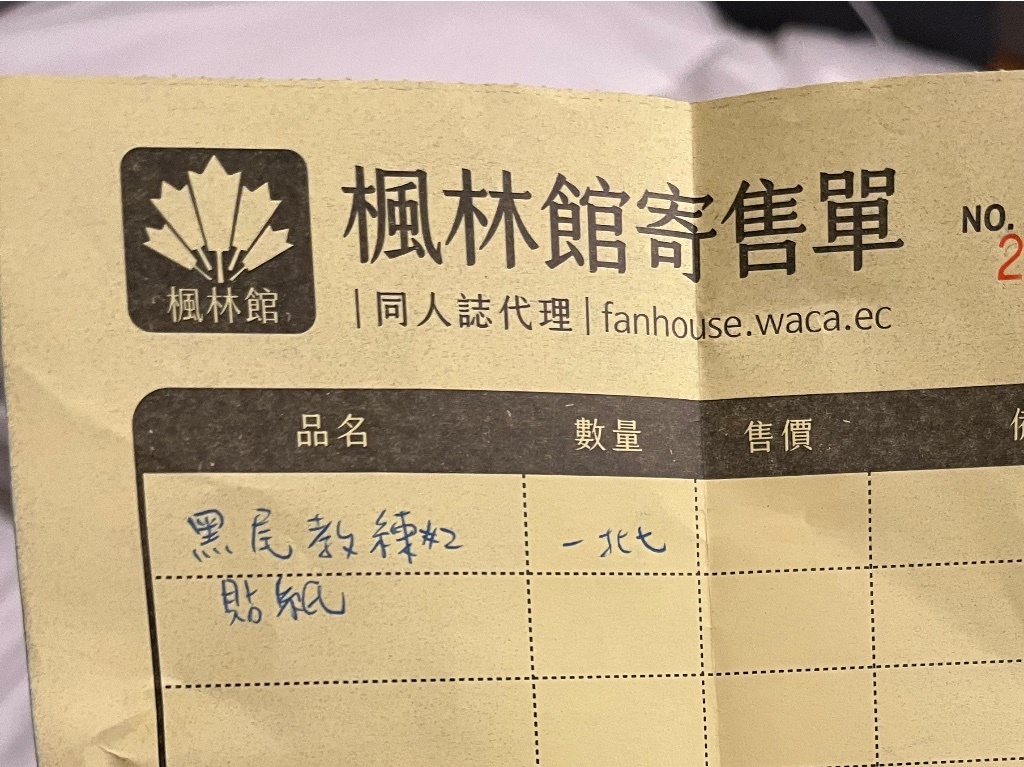 楓林館
楓林館寄售單
NO.
2
|同人誌代理|fanhouse.waca.ec
品名 數量 售價
黑尾教練#2 一批
貼紙